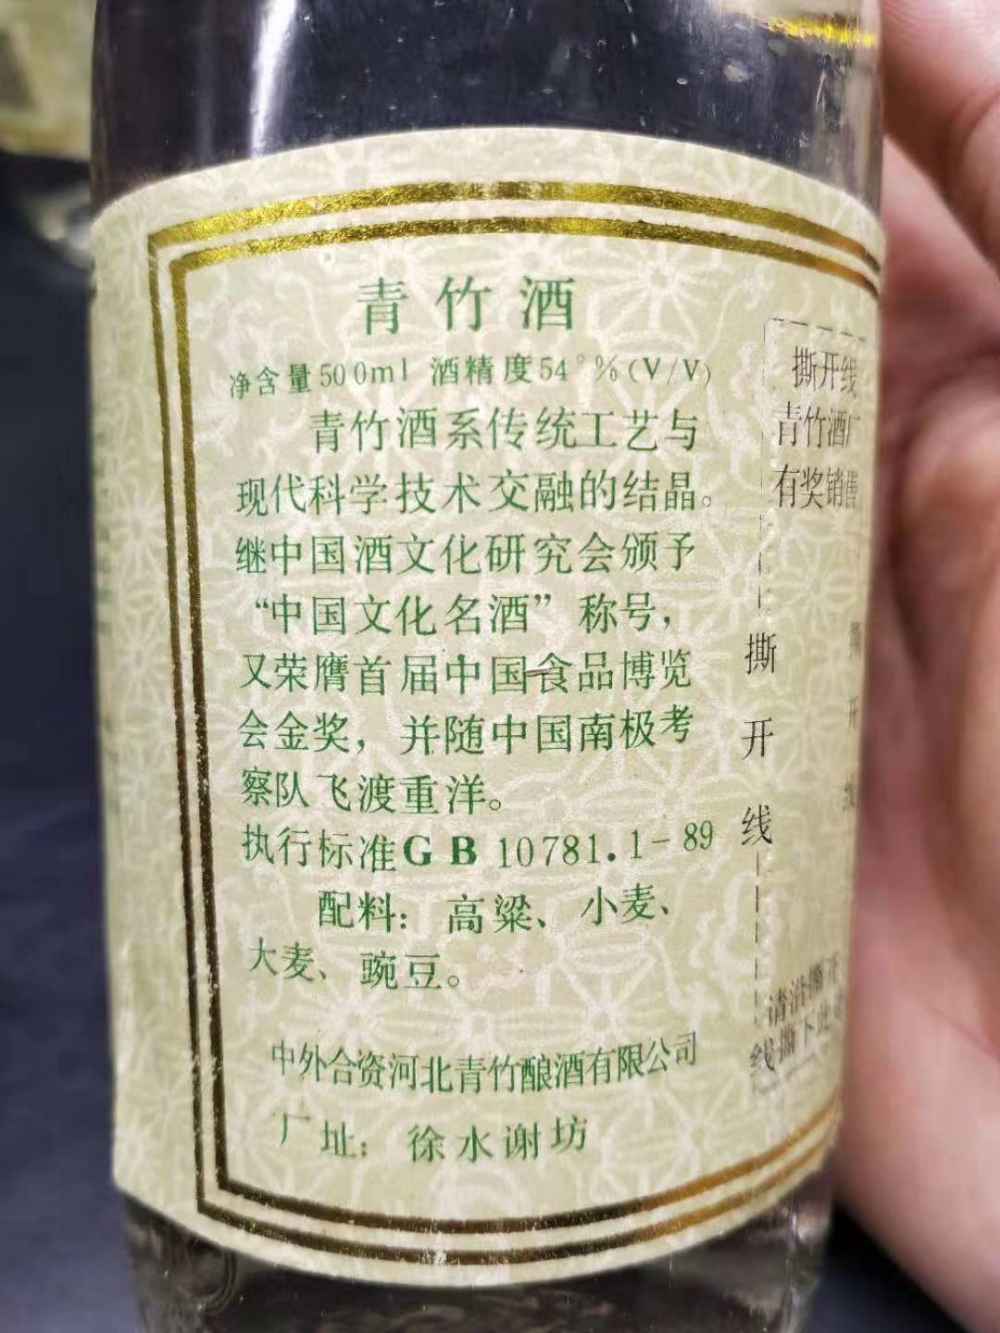 青竹酒
净含量500ml 酒精度54°%(V/V)
青竹酒系传统工艺与
现代科学技术交融的结晶。
继中国酒文化研究会颁予
“中国文化名酒”称号，
又荣膺首届中国食品博览
会金奖，并随中国南极考
察队飞渡重洋。
执行标准GB 10781.1-89
配料：高粱、小麦、
大麦、豌豆。
中外合资河北青竹酿酒有限公司
厂址：徐水谢坊
撕开线
青竹酒厂
有奖销售
撕开线